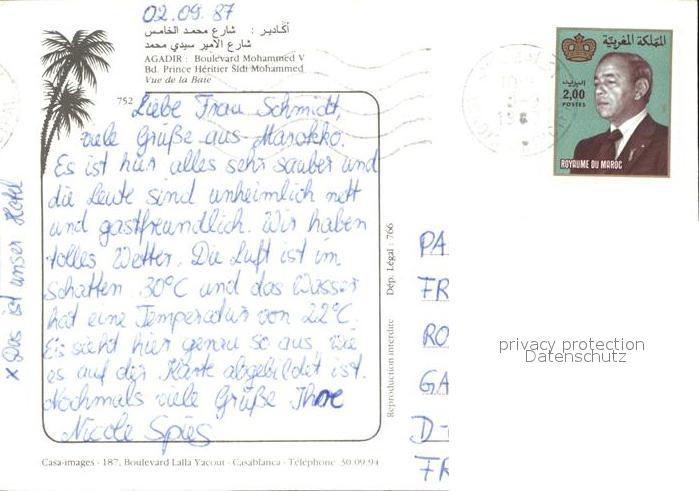 02.09.87
أكادير : شارع محمد الخامس
شارع الامير سيدي محمد
AGADIR : Boulevard Mohammed V
Bd. Prince Héritier Sidi Mohammed
Vue de la Baie
752
Liebe Frau Schmidt,
viele Grüße aus Marokko.
Es ist hier alles sehr sauber und
die Leute sind unheimlich nett
und gastfreundlich. Wir haben
tolles Wetter. Die Luft ist im
Schatten 30°C und das Wasser
hat eine Temperatur von 22°C.
Es sieht hier genau so aus, wie
es auf der Karte abgebildet ist.
Nochmals viele Grüße Ihre
Nicole Spies
x Das ist unser Hotel
Casa-images - 187, Boulevard Lalla Yacout - Casablanca - Téléphone 30.09.94
Reproduction interdite
Dép. Légal : 766
المملكة المغربية
البريد
2,00
POSTES
ROYAUME DU MAROC
PA
FR
RO
GA
D-
FR
privacy protection
Datenschutz